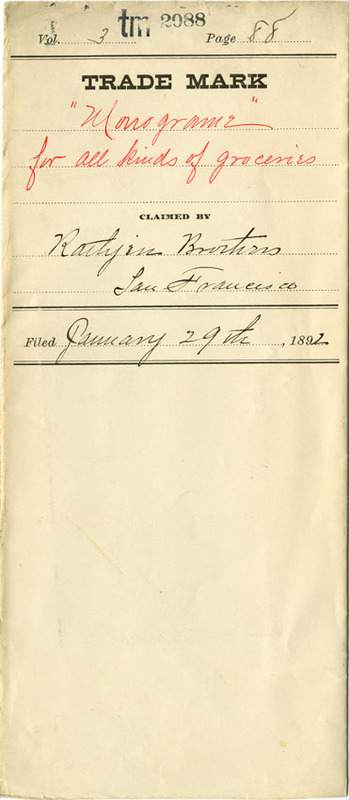 tm 2088
Vol. 3 Page 88
TRADE MARK
"Monograme"
for all kinds of groceries
CLAIMED BY
Rathjen Brothers
San Francisco
Filed January 29th, 1892